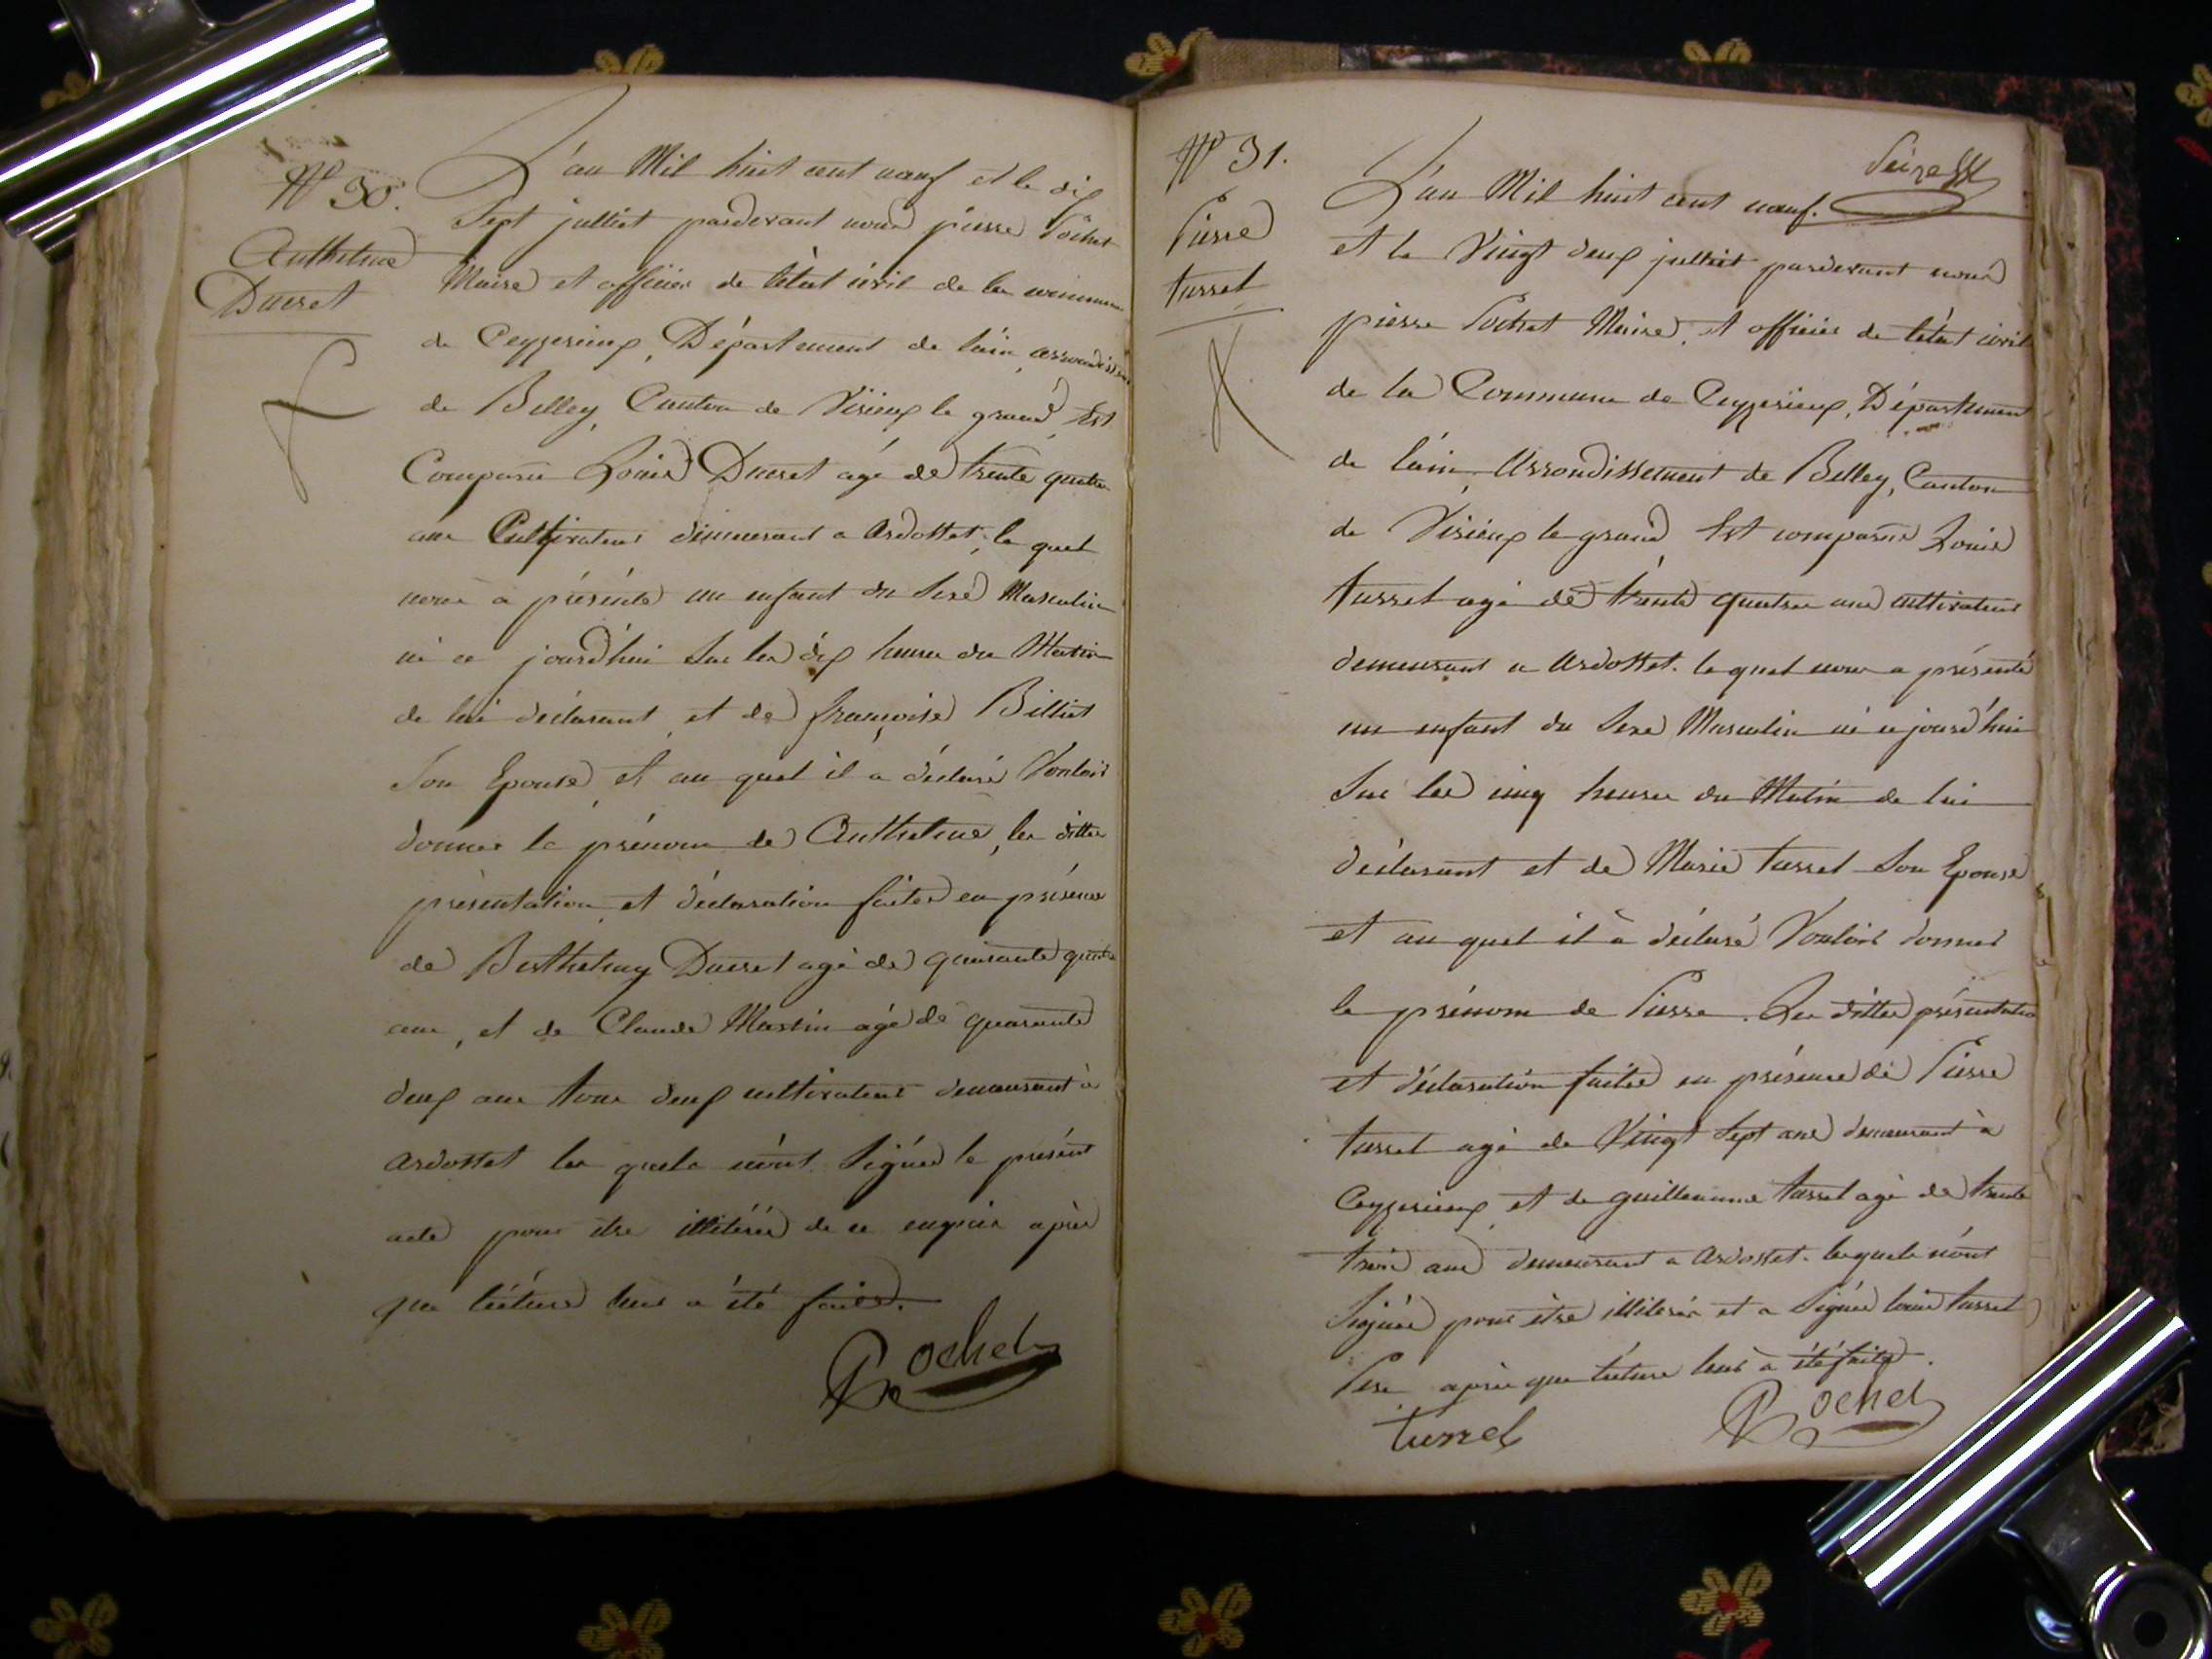 N° 30.
Anthelme
Ducret
L'an Mil huit cent neuf et le dix
Sept julliet pardevant nous pierre Pochet
Maire et officier de l'état civil de la commune
de Ceyzerieux, Département de l'ain, arrondissem
de Belley, Canton de Virieux le grand, Est
Comparu Louis Ducret agé de trente quatre
ans Cultivateur demeurant a Ardottet, le quel
nous a présenté un enfant du Sexe Masculin
né ce jourd'hui Sur les dix heures du Matin
de lui déclarant, et de françoise Billiet
Son Epouse, et au quel il a déclaré Vouloir
donner le prénom de Anthelme, les dittes
présentation et déclaration faites en présence
de Berthelmy Ducret agé de quarante quatre
ans, et de Claude Martin agé de quarante
deux ans tous deux cultivateurs demeurant à
Ardottet les quels n'ont Signés le présent
acte pour être illitérés de ce enquis après
que lécture leur a été faite.
Pochet
N° 31.
Pierre
turrel
L'an Mil huit cent neuf.
et le Vingt deux julliet pardevant nous
pierre Pochet Maire, et officier de l'état civil
de la Commune de Ceyzerieux, Département
de l'ain, Arrondissement de Belley, Canton
de Virieux le grand, Est comparu Louis
turrel agé de trente quatre ans cultivateur
demeurant a Ardottet. le quel nous a présenté
un enfant du Sexe Masculin né ce jourd'hui
Sur les cinq heures du Matin de lui
déclarant et de Marie turrel Son Epouse
et au quel il à déclaré Vouloir donner
le prénom de Pierre. Les dittes présentation
et déclaration faites en présence de Pierre
turrel agé de Vingt Sept ans demeurant à
Ceyzerieux, et de guilleaume turrel agé de trente
trois ans demeurant a Ardottet. lesquels n'ont
Signés pour être illiterés et a Signés louis turrel
Pere après que lécture leur à été faite.
turrel
Pochet